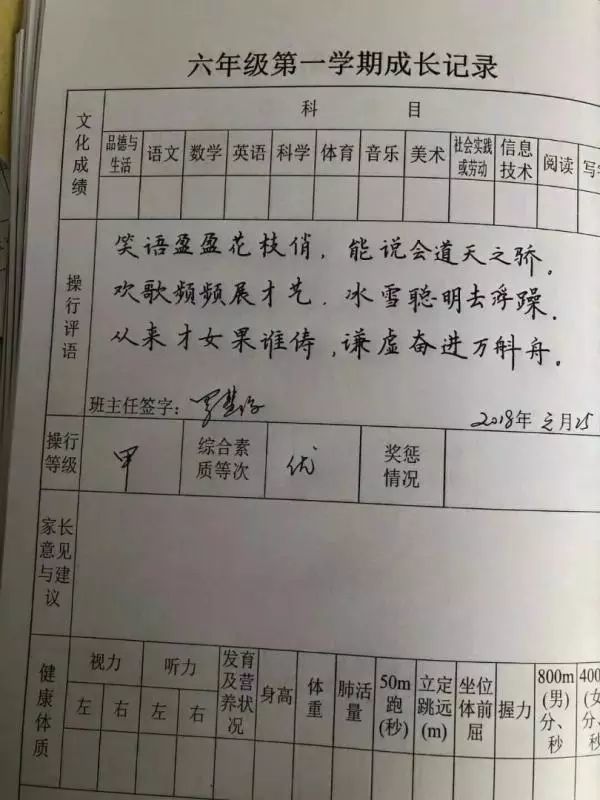 六年级第一学期成长记录
文化成绩
科 目
品德与生活 语文 数学 英语 科学 体育 音乐 美术 社会实践或劳动 信息技术 阅读
操行评语
笑语盈盈花枝俏，能说会道天之骄。
欢歌频频展才艺．冰雪聪明去浮躁．
从来才女果谁俦，谦虚奋进万斛舟。
班主任签字：
2018年元月25
操行等级 甲 综合素质等次 优 奖惩情况
家长意见与建议
健康体质
视力 听力 发育及营养状况 身高 体重 肺活量 50m跑(秒) 立定跳远(m) 坐位体前屈 握力 800m(男)分、秒
左 右 左 右